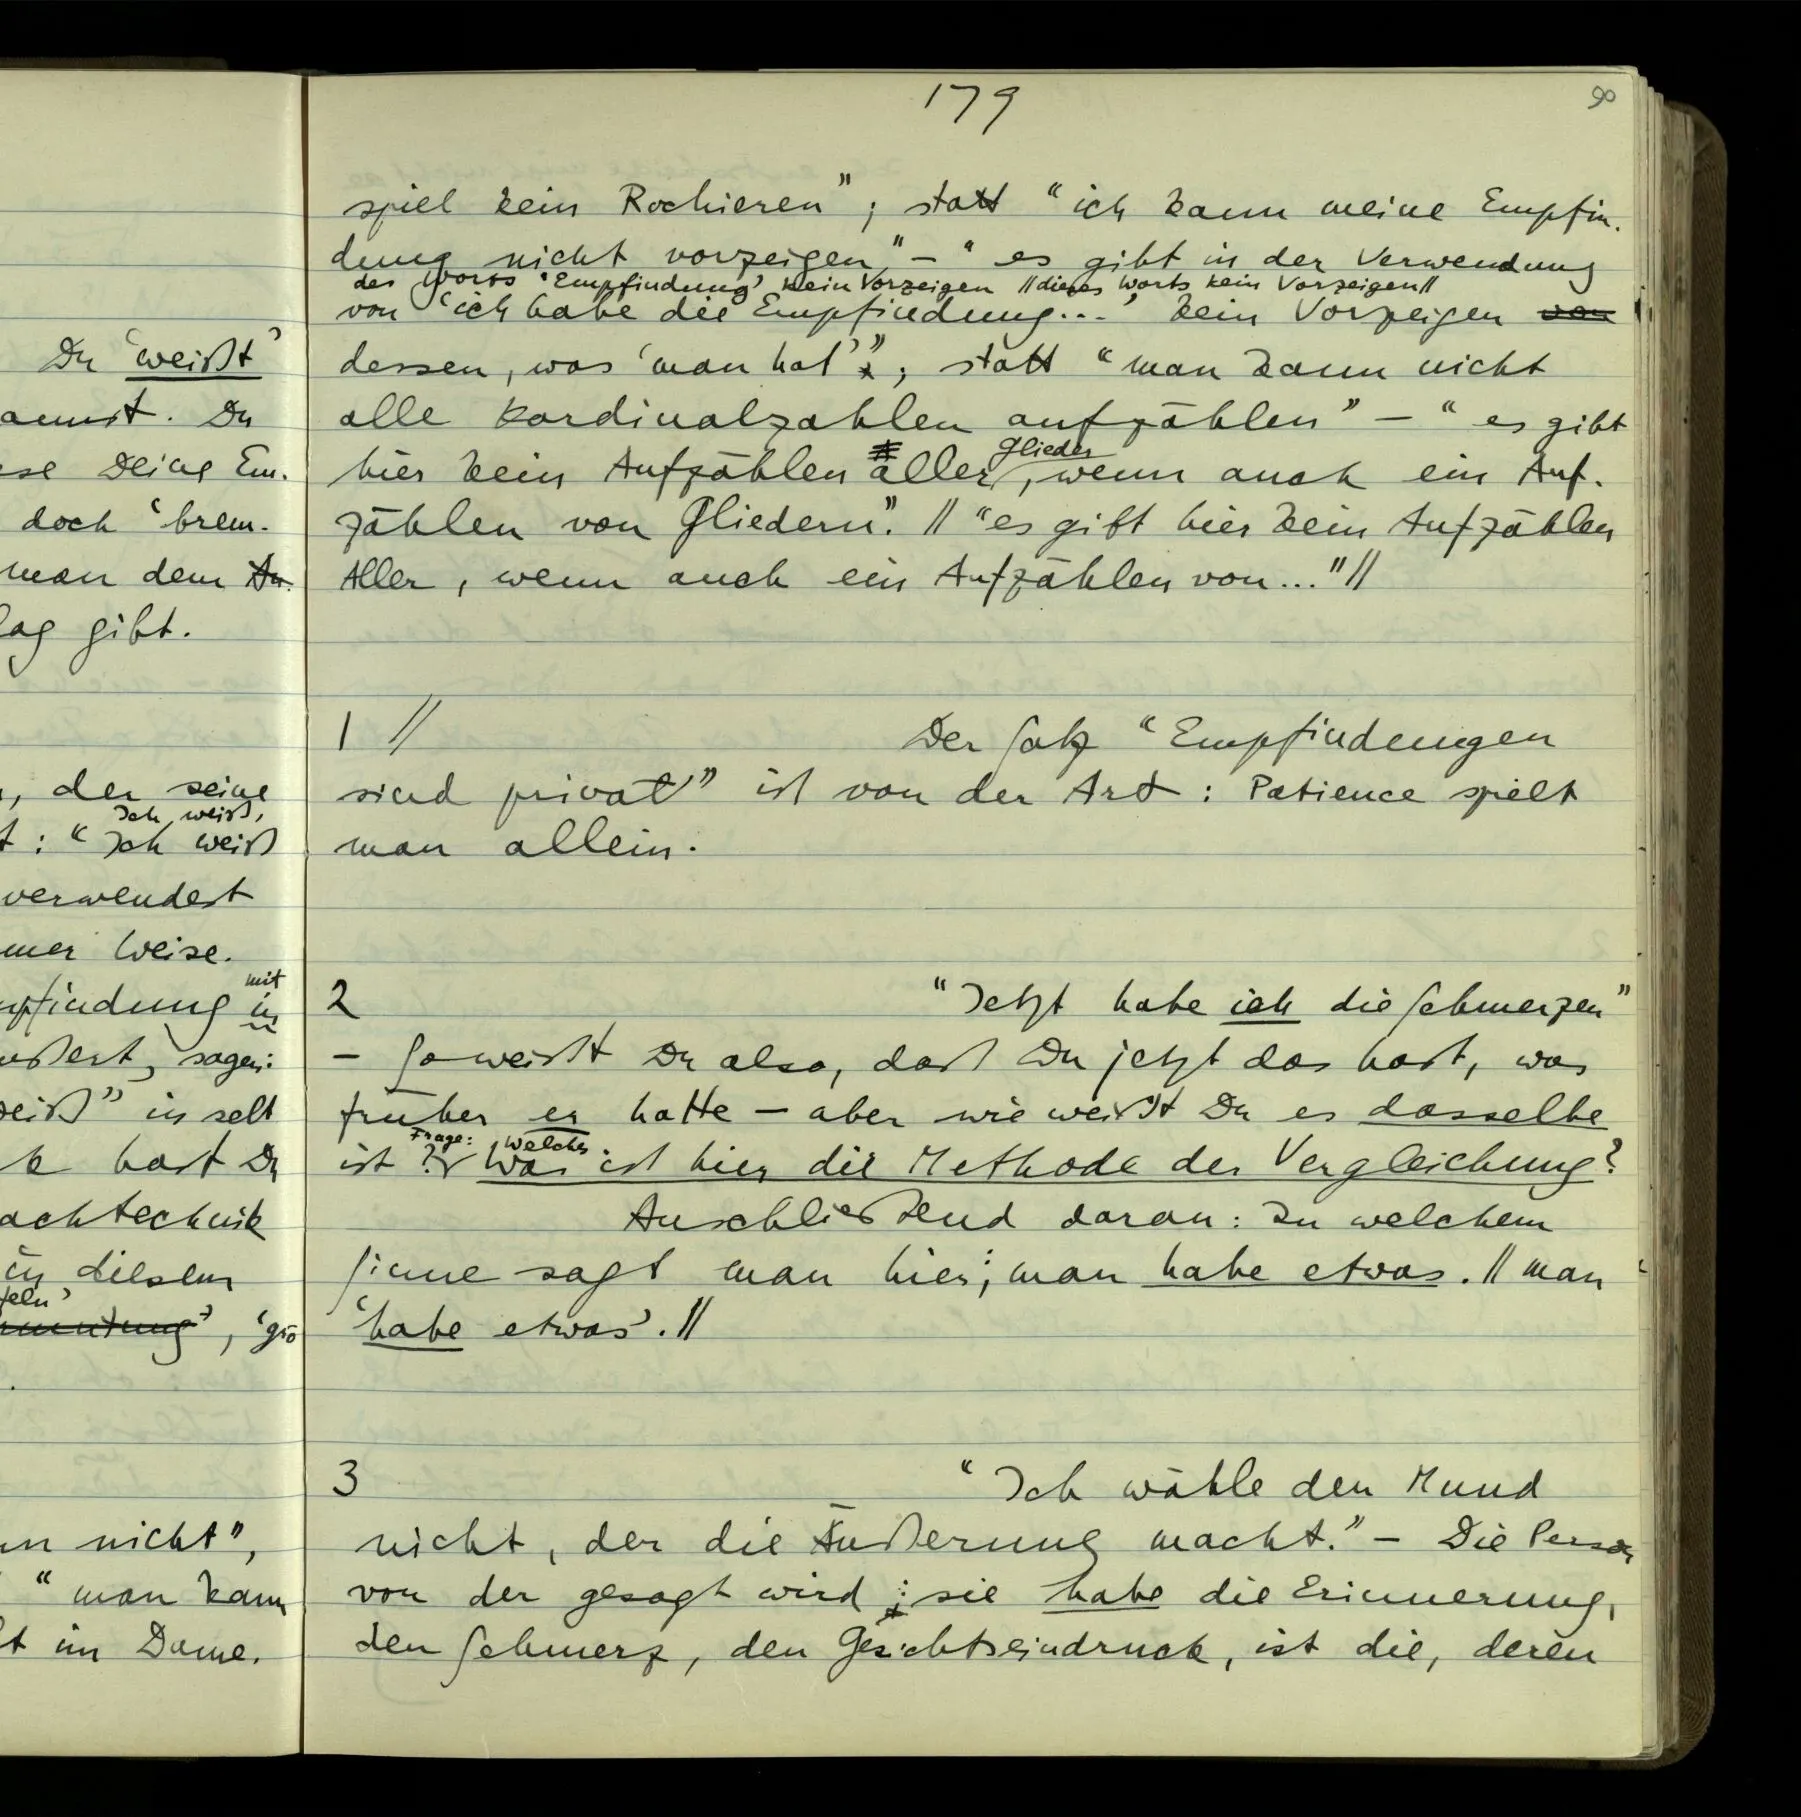 Du ‘weißt’
annst. Du
se Deine Em-
doch ‘brem-
man dem An-
lag gibt.
, der seine
Ich weiß,
t : “Ich weiß
verwendest
mer Weise.
mit
pfindung in
ußert, sagen:
weiß” in selt
hast Du
achtechnik
in diesem
feln’
, ‘grö
nn nicht”,
“man kann
t im Dame-
179
90
spiel kein Rochieren”; statt “ich kann meine Empfin-
dung nicht vorzeigen” – “es gibt in der Verwendung
des Worts ‘Empfindung’ kein Vorzeigen // dieses Worts kein Vorzeigen //
von ‘ich habe die Empfindung...’ kein Vorzeigen von
dessen, was ‘man hat’”; statt “man kann nicht
alle Kardinalzahlen aufzählen” – “es gibt
Glieder
hier kein Aufzählen aller, wenn auch ein Auf-
zählen von Gliedern”. // “es gibt hier kein Aufzählen
Aller, wenn auch ein Aufzählen von...” //
1 // Der Satz “Empfindungen
sind privat” ist von der Art : Patience spielt
man allein.
2 “Jetzt habe ich die Schmerzen”
– So weißt Du also, daß Du jetzt das hast, was
früher er hatte – aber wie weißt Du es dasselbe
Frage: Welches
ist? Was ist hier die Methode der Vergleichung?
Anschließend daran: In welchem
Sinne sagt man hier, man habe etwas. // man
‘habe etwas’. //
3 “Ich wähle den Mund
nicht, der die Äußerung macht.” – Die Person
von der gesagt wird : sie habe die Erinnerung,
den Schmerz, den Gesichtseindruck, ist die, deren